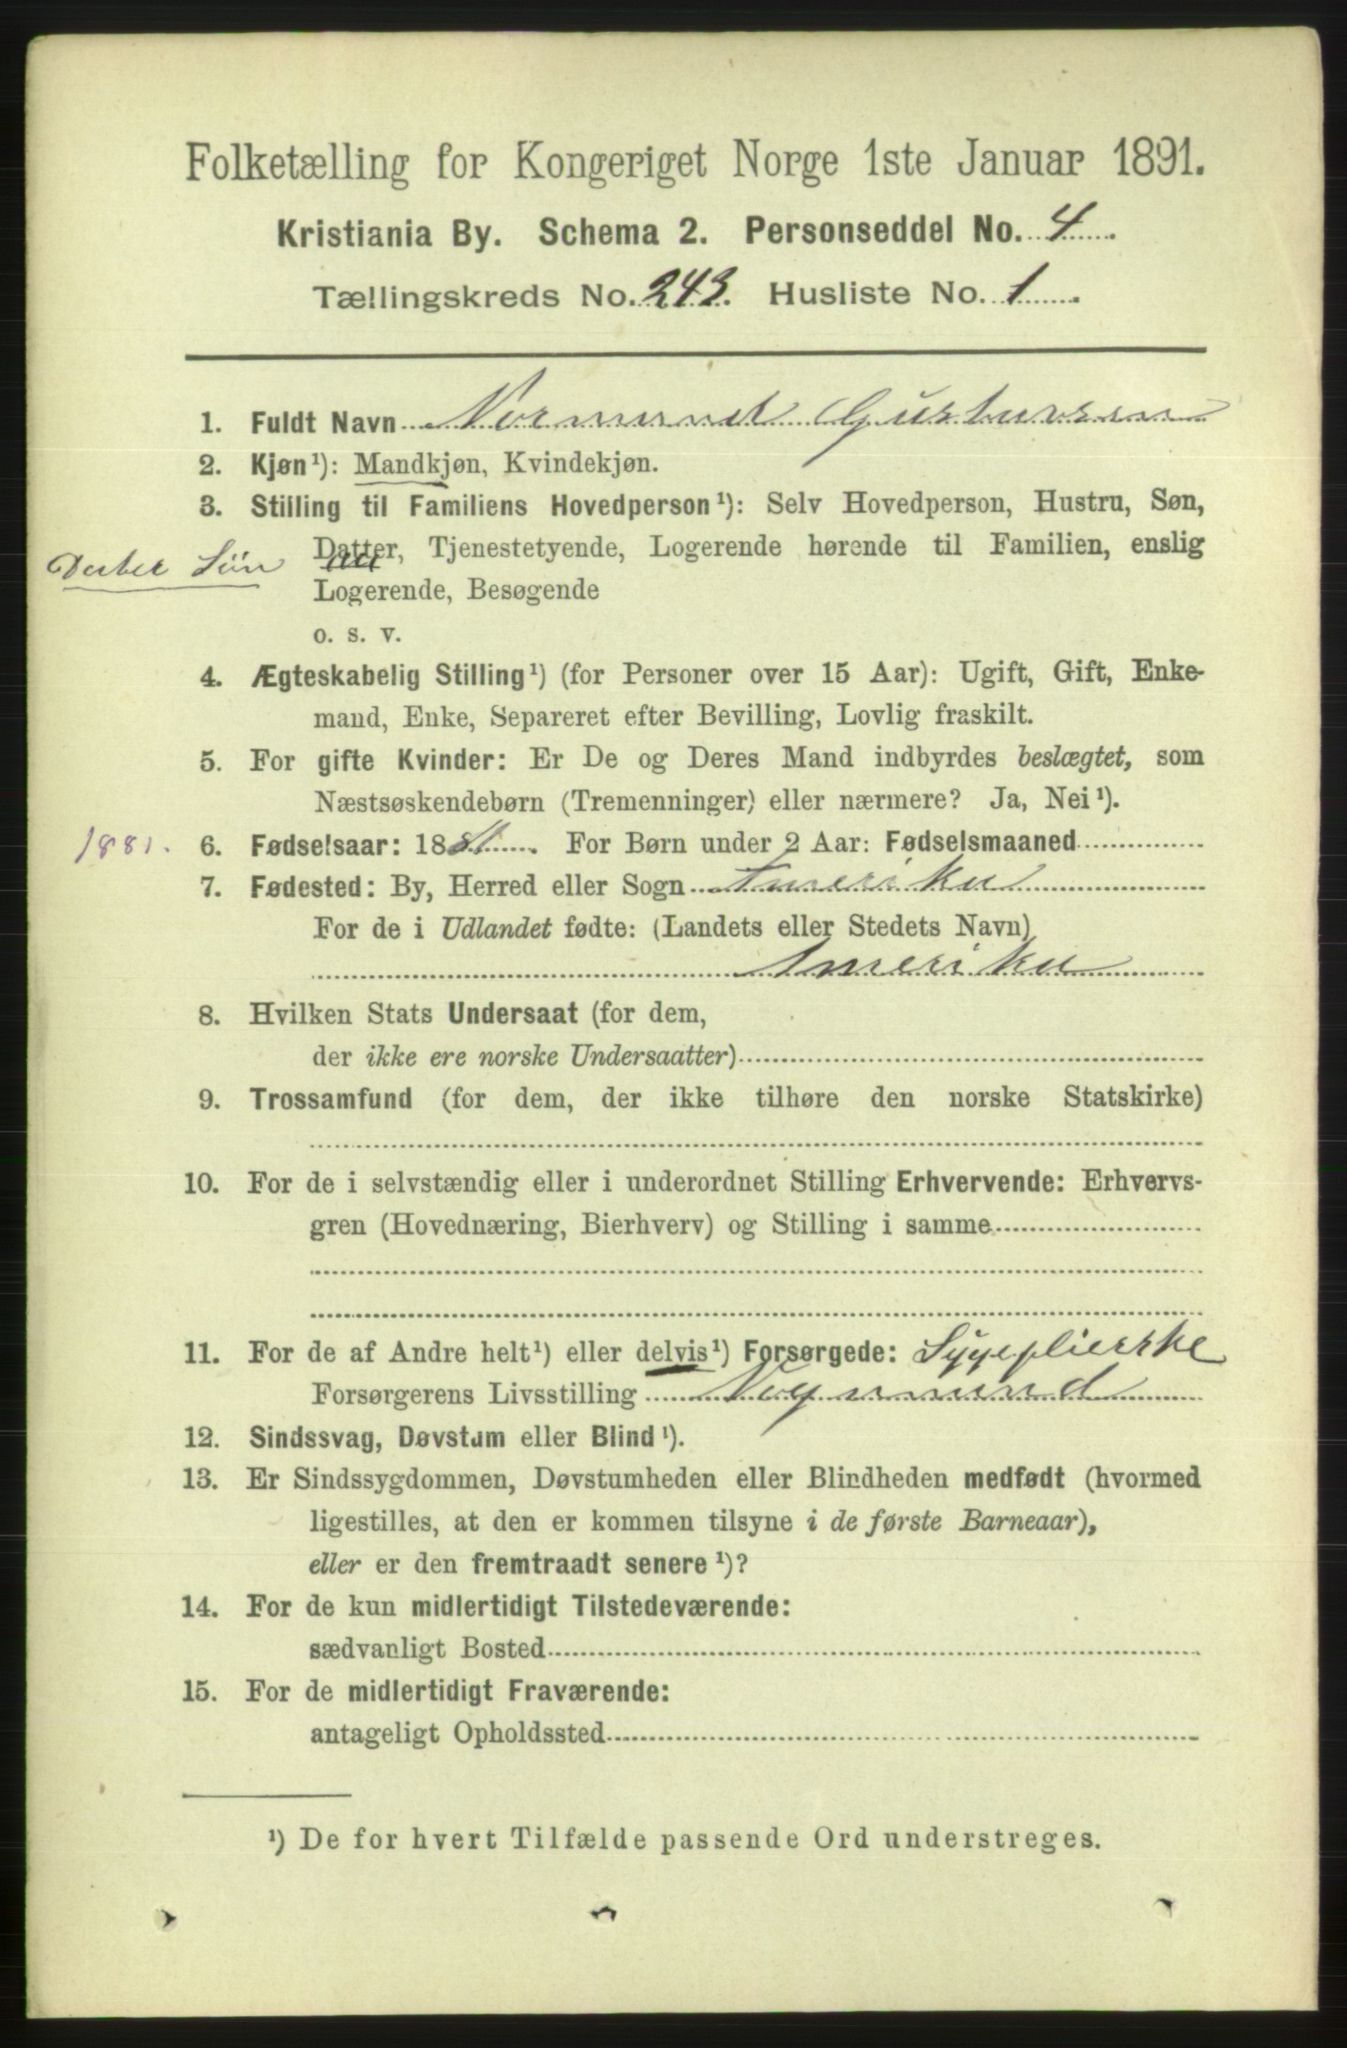 Folketælling for Kongeriget Norge 1ste Januar 1891.
Kristiania By. Schema 2. Personseddel No. 4
Tællingskreds No. 243. Husliste No. 1
1. Fuldt Navn Normund Gustavsen
2. Kjøn¹): Mandkjøn, Kvindekjøn.
3. Stilling til Familiens Hovedperson¹): Selv Hovedperson, Hustru, Søn,
Datter, Tjenestetyende, Logerende hørende til Familien, enslig
Søn
Logerende, Besøgende
o. s. v.
4. Ægteskabelig Stilling¹) (for Personer over 15 Aar): Ugift, Gift, Enke-
mand, Enke, Separeret efter Bevilling, Lovlig fraskilt.
5. For gifte Kvinder: Er De og Deres Mand indbyrdes beslægtet, som
Næstsøskendebørn (Tremenninger) eller nærmere? Ja, Nei¹).
1881. 6. Fødselsaar: 1881. For Børn under 2 Aar: Fødselsmaaned
7. Fødested: By, Herred eller Sogn Amerika
For de i Udlandet fødte: (Landets eller Stedets Navn)
Amerika
8. Hvilken Stats Undersaat (for dem,
der ikke ere norske Undersaatter)
9. Trossamfund (for dem, der ikke tilhøre den norske Statskirke)
10. For de i selvstændig eller i underordnet Stilling Erhvervende: Erhvervs-
gren (Hovednæring, Bierhverv) og Stilling i samme
11. For de af Andre helt¹) eller delvis¹) Forsørgede: Sygeplierske
Forsørgerens Livsstilling Vognmand
12. Sindssvag, Døvstum eller Blind¹).
13. Er Sindssygdommen, Døvstumheden eller Blindheden medfødt (hvormed
ligestilles, at den er kommen tilsyne i de første Barneaar),
eller er den fremtraadt senere¹)?
14. For de kun midlertidigt Tilstedeværende:
sædvanligt Bosted
15. For de midlertidigt Fraværende:
antageligt Opholdssted
¹) De for hvert Tilfælde passende Ord understreges.